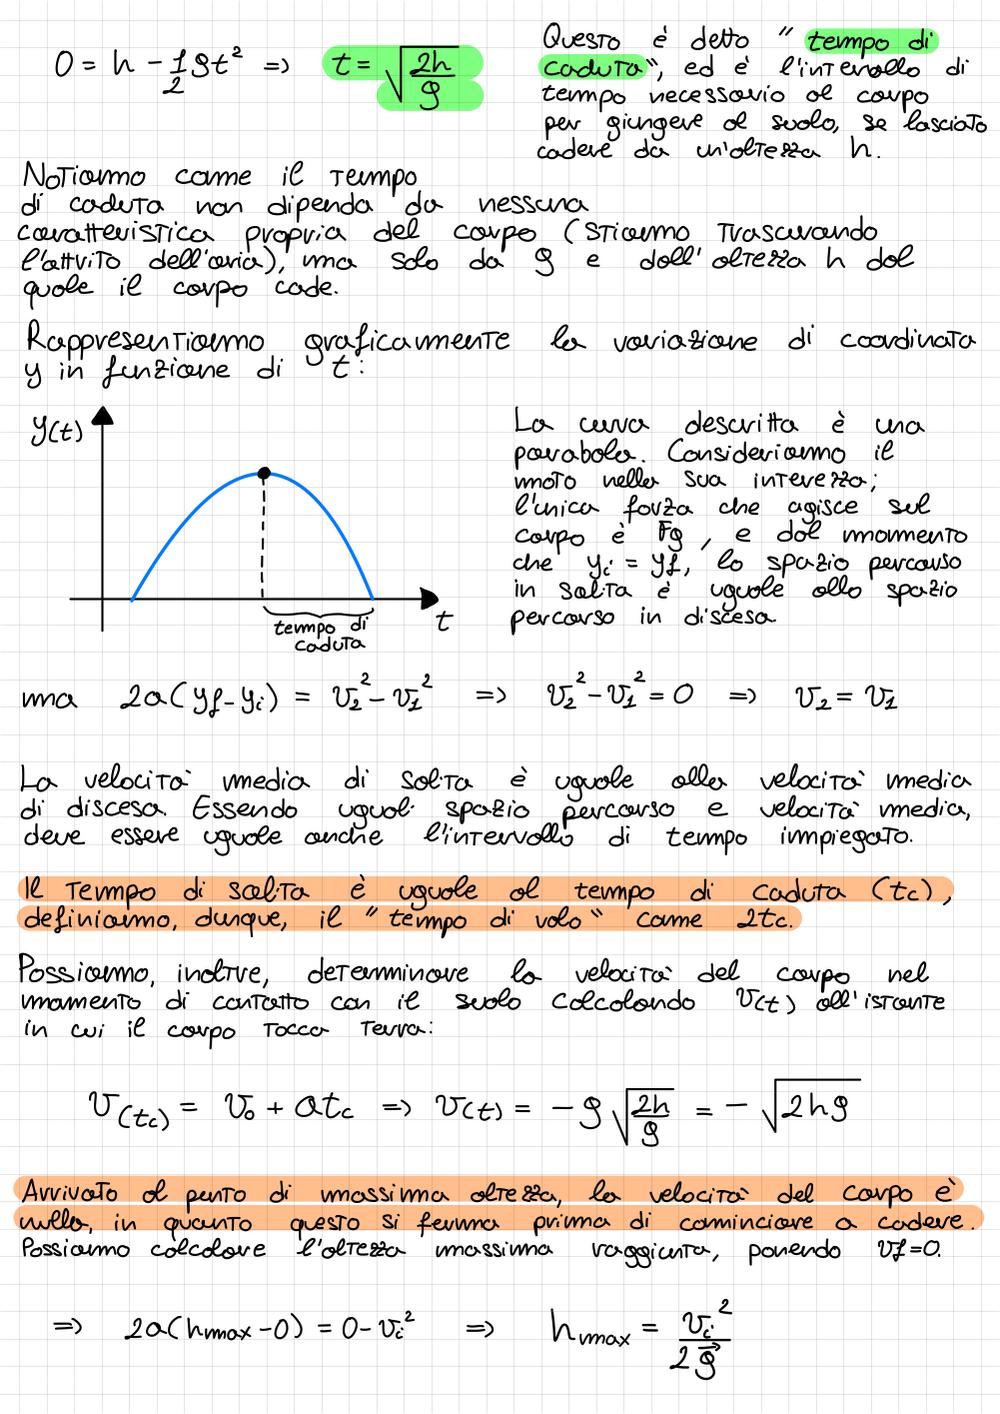 0 = h - 1/2 gt² => t = √(2h/g)
Questo è detto " tempo di
caduta", ed è l'intervallo di
tempo necessario al corpo
per giungere al suolo, se lasciato
cadere da un'altezza h.
Notiamo come il tempo
di caduta non dipenda da nessuna
caratteristica propria del corpo (stiamo trascurando
l'attrito dell'aria), ma solo da g e dall'altezza h dal
quale il corpo cade.
Rappresentiamo graficamente la variazione di coordinata
y in funzione di t:
y(t)
t
tempo di
caduta
La curva descritta è una
parabola. Consideriamo il
moto nella sua interezza;
l'unica forza che agisce sul
corpo è Fg, e dal momento
che yi = yf, lo spazio percorso
in salita è uguale allo spazio
percorso in discesa
ma 2a(yf-yi) = v₂² - v₁² => v₂² - v₁² = 0 => v₂ = v₁
La velocità media di salita è uguale alla velocità media
di discesa. Essendo uguali spazio percorso e velocità media,
deve essere uguale anche l'intervallo di tempo impiegato.
Il tempo di salita è uguale al tempo di caduta (tc),
definiamo, dunque, il "tempo di volo" come 2tc.
Possiamo, inoltre, determinare la velocità del corpo nel
momento di contatto con il suolo calcolando v(t) all'istante
in cui il corpo tocca terra:
v(tc) = v₀ + atc => v(t) = -g √(2h/g) = - √2hg
Arrivato al punto di massima altezza, la velocità del corpo è
nulla, in quanto questo si ferma prima di cominciare a cadere.
Possiamo calcolare l'altezza massima raggiunta, ponendo vf=0.
=> 2a(hmax-0) = 0-vi² => hmax = vi²/2g⃗